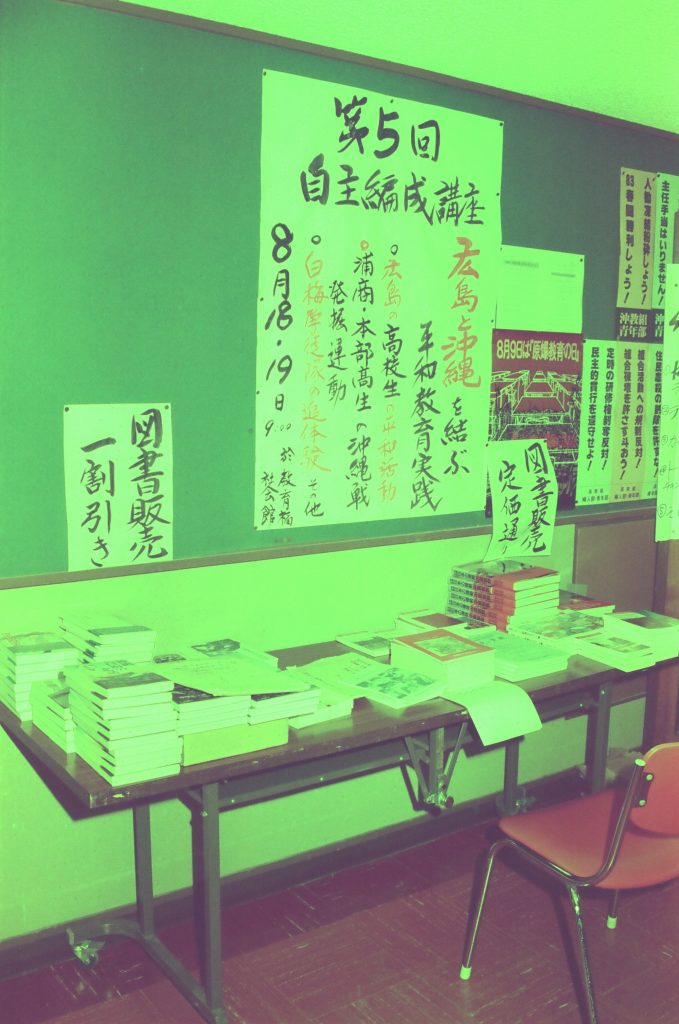 第5回
自主編成講座
広島と沖縄を結ぶ
平和教育実践
○広島の高校生の平和活動
○浦商・本部高生の沖縄戦
発掘運動
○白梅学徒隊の追体験 その他
8月18・19日 9:00 於教育福
祉会館
図書販売
一割引き
8月9日は「原爆教育の日」
図書販売
定価通り
主任手当はいりません!
人勧凍結粉砕しよう!
83春闘勝利しよう!
沖教組
青年部
組合活動への規制反対!
組合破壊を許さず斗おう!
定時の研修権剥奪反対!
民主的慣行を遵守せよ!